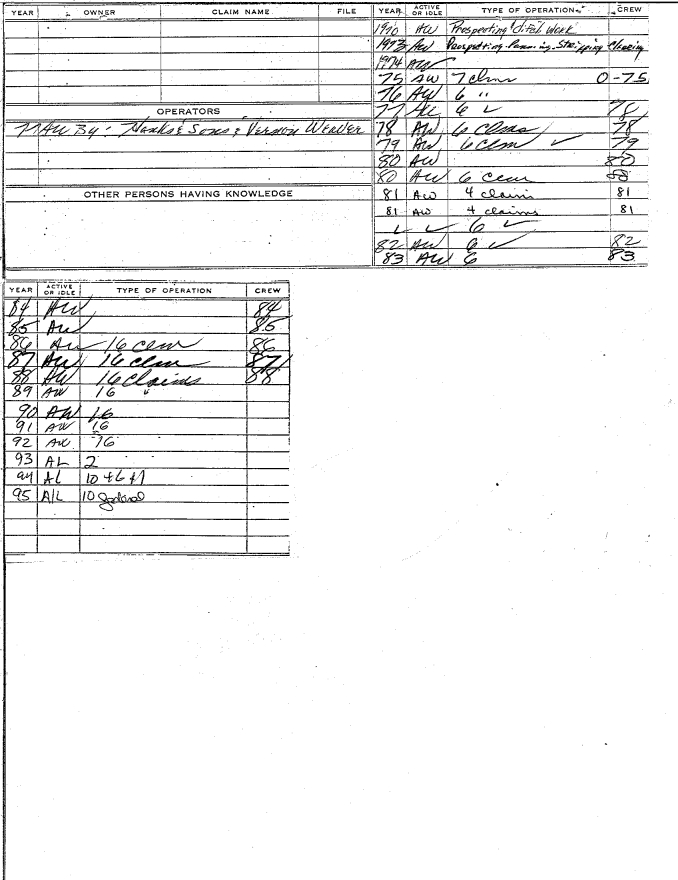 YEAR OWNER CLAIM NAME FILE
OPERATORS
By - Hanks & Sons & Vernon Weaver
OTHER PERSONS HAVING KNOWLEDGE
YEAR ACTIVE OR IDLE TYPE OF OPERATION CREW
1970 AW Prospecting ditch work
1973 AW Prospecting Panning Stripping Clearing
1974 AW
75 AW 7 clms 0-75
76 AW 6 "
77 AW 6 ✓ 78
78 AW 6 clms 78
79 AW 6 clm ✓ 79
80 AW 80
80 AW 6 clm
81 AW 4 claim 81
81 AW 4 claims 81
✓ ✓ 6 ✓
82 AW 6 ✓ 82
83 AW 6 83
YEAR ACTIVE OR IDLE TYPE OF OPERATION CREW
84 AW 84
85 AW 85
86 AW 16 clm 86
87 AW 16 clm 87
88 AW 16 Claims 88
89 AW 16 "
90 AW 16
91 AW 16
92 AW 16
93 AL 2
94 AL 10 +6 +1
95 A/L 10